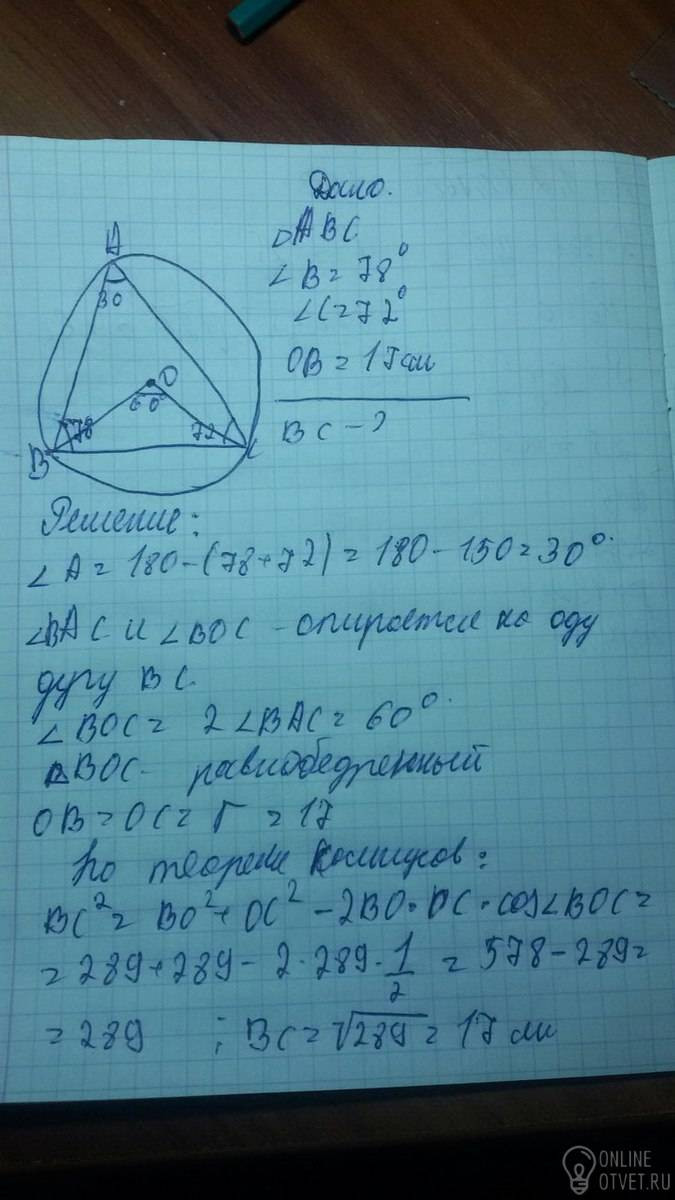 Дано.
△ABC
∠B = 78°
∠C = 72°
OB = 17 см
BC - ?
A
30
O
60°
78
72
B
C
Решение:
∠A = 180 - (78 + 72) = 180 - 150 = 30°.
∠BAC и ∠BOC - опирается на оду
дугу BC.
∠BOC = 2∠BAC = 60°.
△BOC - равнобедренный
OB = OC = r = 17
по теореме Косинусов:
BC² = BO² + OC² - 2BO · OC · cos∠BOC =
= 289 + 289 - 2 · 289 · 1/2 = 578 - 289 =
= 289 ; BC = √289 = 17 см
ONLINE
OTVET.RU